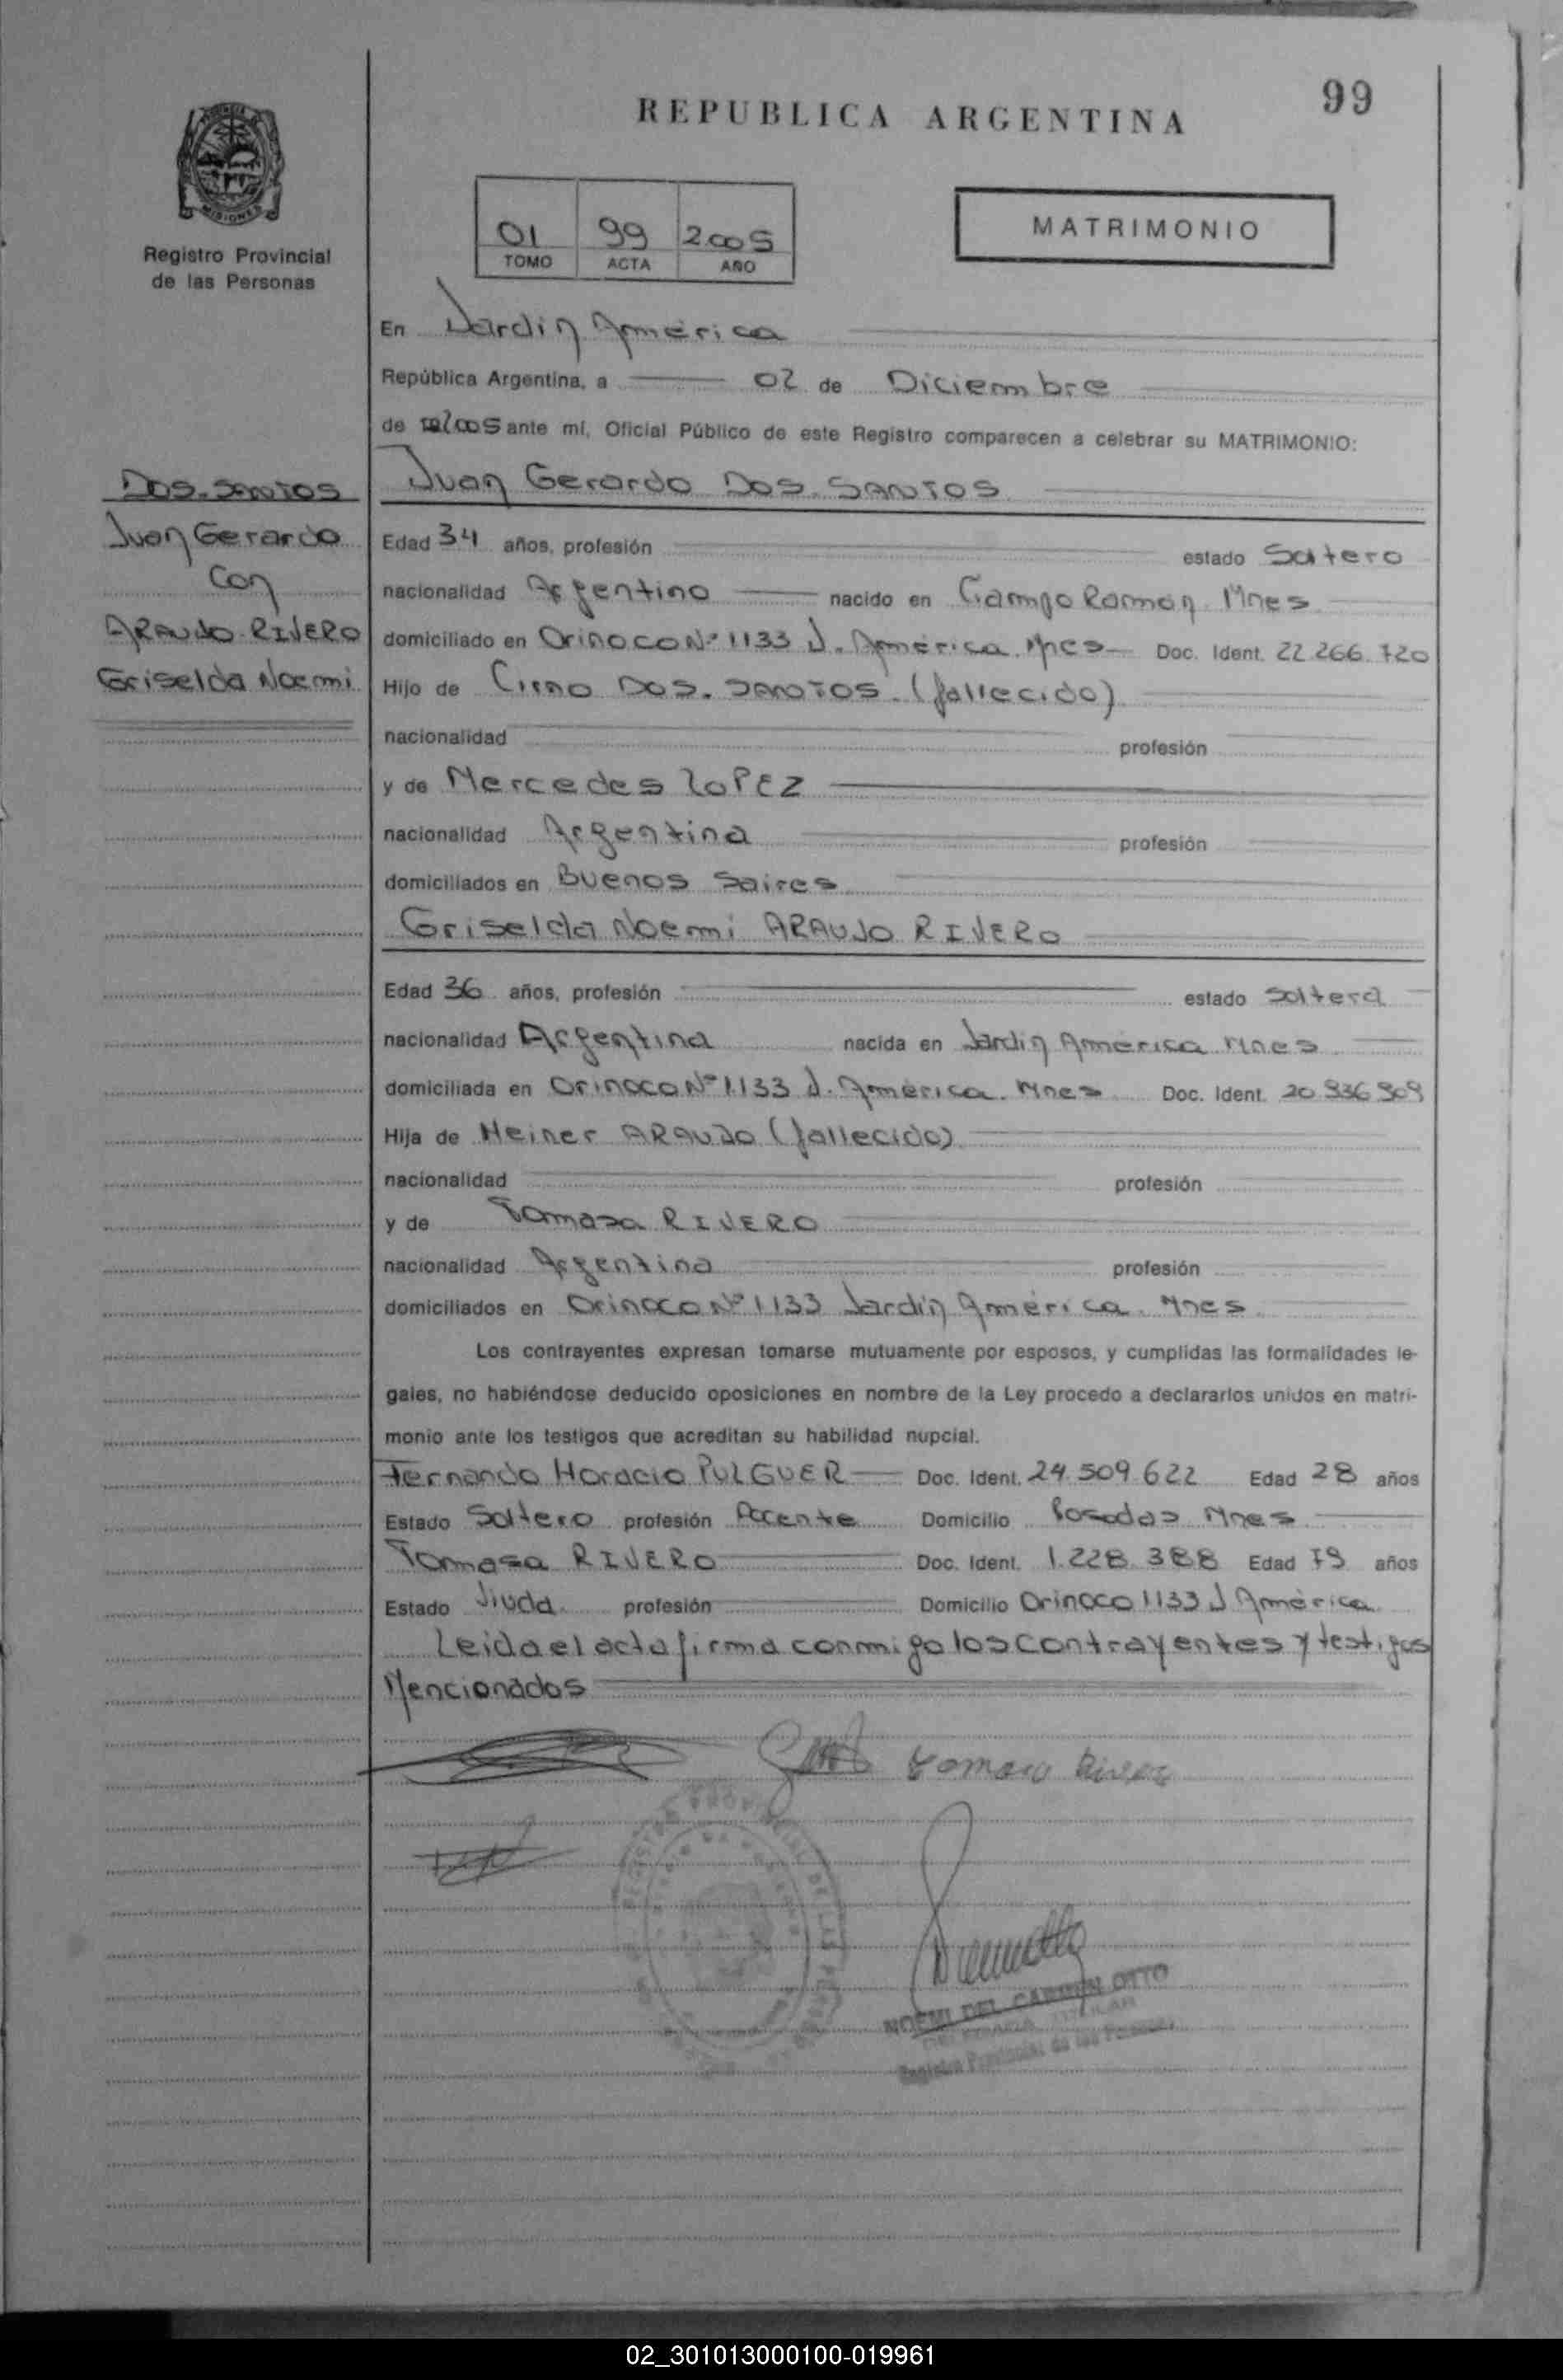 99
REPUBLICA ARGENTINA
MISIONES
Registro Provincial
de las Personas
01 99 2005
TOMO ACTA AÑO
MATRIMONIO
En Jardin America
República Argentina, a 02 de Diciembre
de 2005 ante mí, Oficial Público de este Registro comparecen a celebrar su MATRIMONIO:
DOS. SANTOS
Juan Gerardo
Con
ARAUJO RIVERO
Griselda Noemi
Juan Gerardo DOS. SANTOS
Edad 34 años, profesión estado Soltero
nacionalidad Argentino nacido en Campo Ramon Mnes
domiciliado en Orinoco Nº 1133 J. América. Mnes Doc. Ident. 22 266.720
Hijo de DOS. SANTOS. (fallecido)
nacionalidad profesión
y de Mercedes LOPEZ
nacionalidad Argentina profesión
domiciliados en Buenos Saires
Griselda Noemi ARAUJO RIVERO
Edad 36 años, profesión estado Soltera
nacionalidad Argentina nacida en Jardin America Mnes
domiciliada en Orinoco Nº 1133 J. América. Mnes Doc. Ident. 20 336 909
Hija de Heiner ARAUJO (fallecido)
nacionalidad profesión
y de Tomasa RIVERO
nacionalidad Argentina profesión
domiciliados en Orinoco Nº 1133 Jardin América. Mnes
Los contrayentes expresan tomarse mutuamente por esposos, y cumplidas las formalidades le-
gales, no habiéndose deducido oposiciones en nombre de la Ley procedo a declararlos unidos en matri-
monio ante los testigos que acreditan su habilidad nupcial.
Fernando Horacio PULGUER Doc. Ident. 24.509.622 Edad 28 años
Estado Soltero profesión Docente Domicilio Posadas Mnes
Tomasa RIVERO Doc. Ident. 1.228.388 Edad 79 años
Estado Viuda profesión Domicilio Orinoco 1133 J América
Leida el acta firma conmigo los contrayentes y testigos
Mencionados
Tomasa Rivero
NOEMI DEL CARMEN OTTO
DELEGADA TITULAR
Registro Provincial de las Personas
02_301013000100-019961